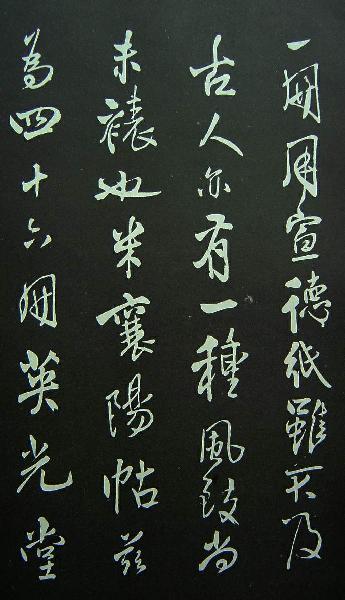 一冊用宣德紙雖不及
古人亦有一種風致尚
未裱也米襄陽帖茲
為四十六冊英光堂